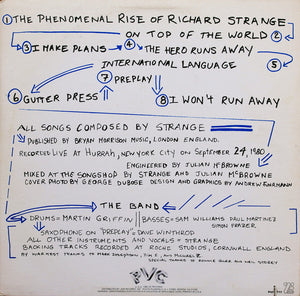 ① THE PHENOMENAL RISE OF RICHARD STRANGE
ON TOP OF THE WORLD ②
③ I MAKE PLANS ④ THE HERO RUNS AWAY
INTERNATIONAL LANGUAGE ⑤
⑦ PREPLAY
⑥ GUTTER PRESS ⑧ I WON'T RUN AWAY
ALL SONGS COMPOSED BY STRANGE
PUBLISHED BY BRYAN MORRISON MUSIC, LONDON ENGLAND.
RECORDED LIVE AT HURRAH, NEW YORK CITY ON SEPTEMBER 24, 1980
ENGINEERED BY JULIAN McBROWNE
MIXED AT THE SONGSHOP BY STRANGE AND JULIAN McBROWNE
COVER PHOTO BY GEORGE DUBOSE DESIGN AND GRAPHICS BY ANDREW EHRMANN
THE BAND
DRUMS = MARTIN GRIFFIN // BASSES = SAM WILLIAMS PAUL MARTINEZ
SIMON FRAZER
SAXOPHONE ON "PREPLAY" = DAVE WINTHROP
ALL OTHER INSTRUMENTS AND VOCALS = STRANGE
BACKING TRACKS RECORDED AT ROCHE STUDIOS, CORNWALL ENGLAND.
PVC